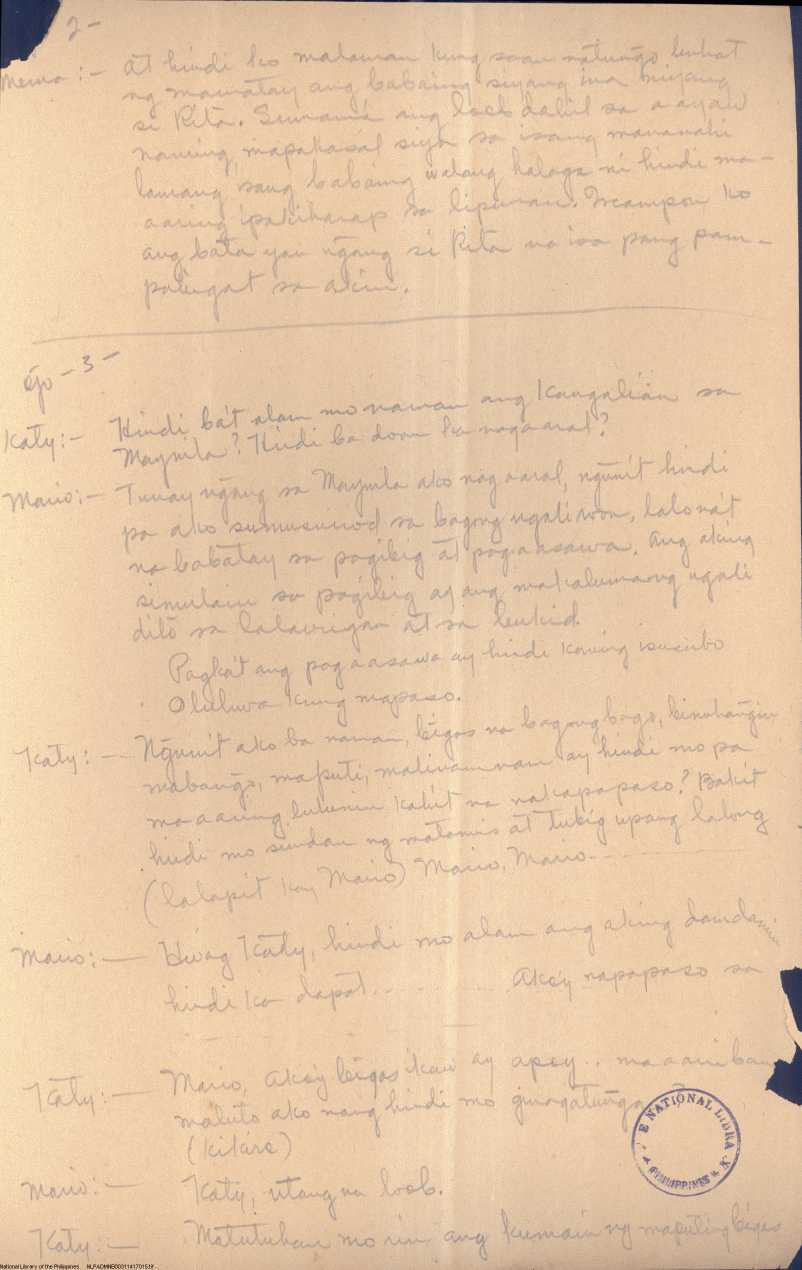 2-
at hindi ko malaman kung saan natungo buhat
ng mamatay ang babaing siyang ina niyang
si Rita. Sumamá ang loob dahil sa a ayaw
naming mapakasal siya sa isang mananahi
lamang isang babaing walang halaga ni hindi ma-
aaring ipakiharap sa lipunan. Inampon ko
ang bata yan ngang si Rita na isa pang pam-
pabigat sa akin.
- 3 -
Katy:- Hindi bá't alam mo naman ang kaugalián sa
Maynila? Hindi ba doon ka nagaaral?
Mario:- Tunay ngang sa Maynila ako nag aaral, ngunit hindi
pa ako sumusunod sa bagong ugali won, lalo ná't
na babatay sa pagibig at pagaasawa. Ang aking
simulain sa pagibig ay ang makalumang ugali
dito sa lalawigan at sa bukid.
Pagká't ang pagaasawa ay hindi kaning isusubo
Iluluwa kung mapaso.
Katy:- Ngunit ako ba naman, bigas na bagong bago, binuhangin
mabango, maputi, malinamnam ay hindi mo pa
maaaring lulunin kahit na nakapapaso? Bakit
hindi mo sundan ng matamis at tubig upang lalong
(lalapit kay Mario) Mario, Mario-----
Mario:- Hwag Katy, hindi mo alam ang aking damdamin
hindi ka dapat......... Ako'y napapaso sa
Katy:- Mario, Ako'y bigas ikaw ay apoy.. maaari bang
maluto ako nang hindi mo ginagatungan
(kikire)
Mario:- Katy, utang na loob.
Katy:- Matutuhan mo rin ang kumain ng maputing bigas
E NATIONAL LIBRA
PHILIPPINES
National Library of the Philippines NLPADMNB00311417015lf